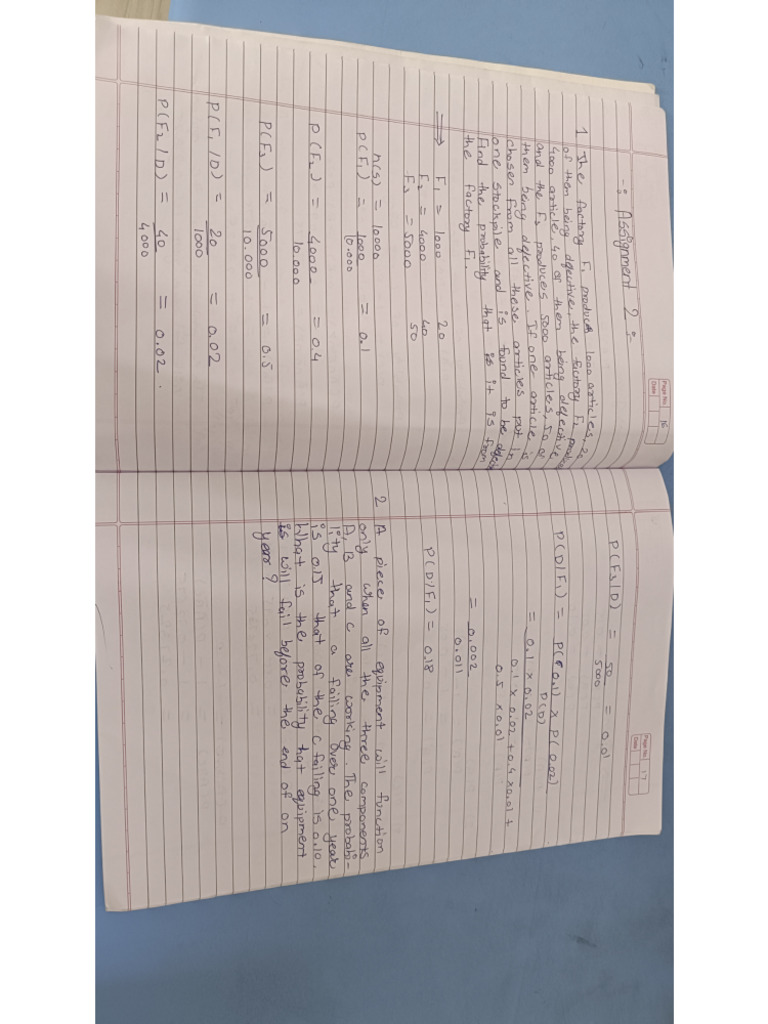 Page No. 16
Date
-: Assignment 2 :-
1 The factory F1 produces 1000 articles, 20
of them being defective, the factory F2 produces
4000 article, 40 of them being defective
and the F3 produces 5000 articles, 50 of
them being defective. If one article is
chosen from all these articles put in
one stockpile and is found to be
Find the probability that is it is from
the factory F1.
→ F1 = 1000 20
F2 = 4000 40
F3 = 5000 50
n(s) = 10000
P(F1) = 1000/10.000 = 0.1
P(F2) = 4000/10.000 = 0.4
P(F3) = 5000/10.000 = 0.5
P(F1/D) = 20/1000 = 0.02
P(F2/D) = 40/4000 = 0.02.
Page No. 17
Date
P(F3/D) = 50/5000 = 0.01
P(D/F1) = P(0.1) x P(0.02)
P(D)
= 0.1 x 0.02
0.1 x 0.02 + 0.4 x 0.01 +
0.5 x 0.01
= 0.002
0.011
P(D/F1) = 0.18
2 A piece of equipment will function
only when all the three components
A, B and C are working. The probabi-
lity that a failing over one year
is 0.15 that of the C failing is 0.10.
What is the probability that equipment
is will fail before the end of on
year?